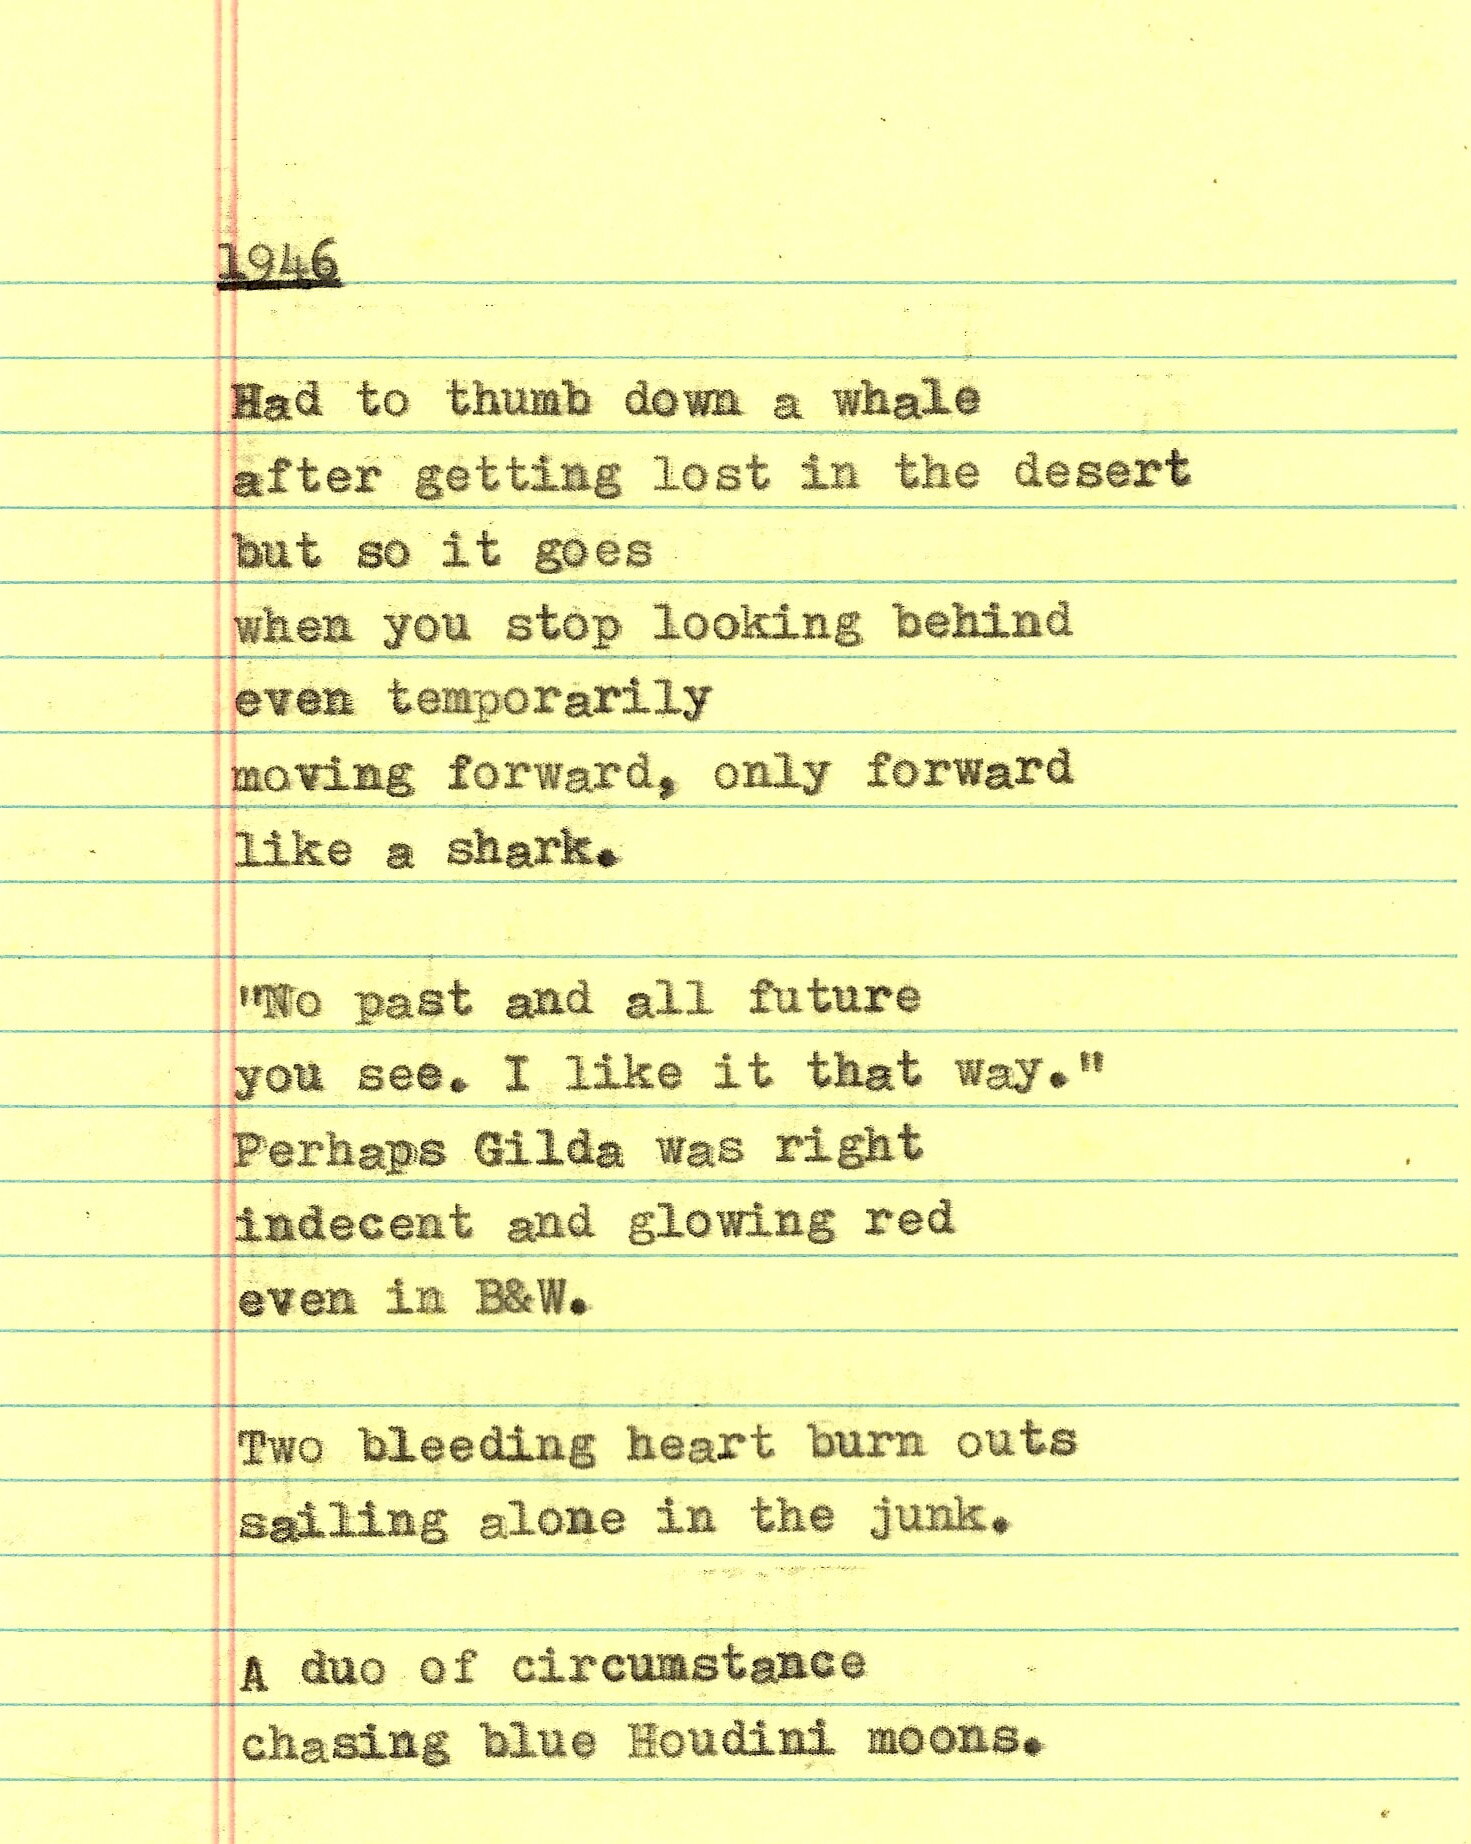 1946
Had to thumb down a whale
after getting lost in the desert
but so it goes
when you stop looking behind
even temporarily
moving forward, only forward
like a shark.
"No past and all future
you see. I like it that way."
Perhaps Gilda was right
indecent and glowing red
even in B&W.
Two bleeding heart burn outs
sailing alone in the junk.
A duo of circumstance
chasing blue Houdini moons.